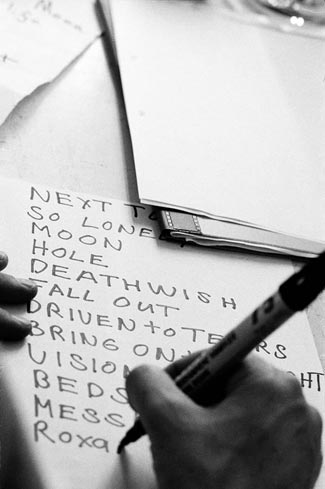 Moon
NEXT T
SO LONE
MOON
HOLE
DEATHWISH
FALL OUT
DRIVEN TO T RS
BRING ON
VISION HT
BEDS
MESS
Roxa